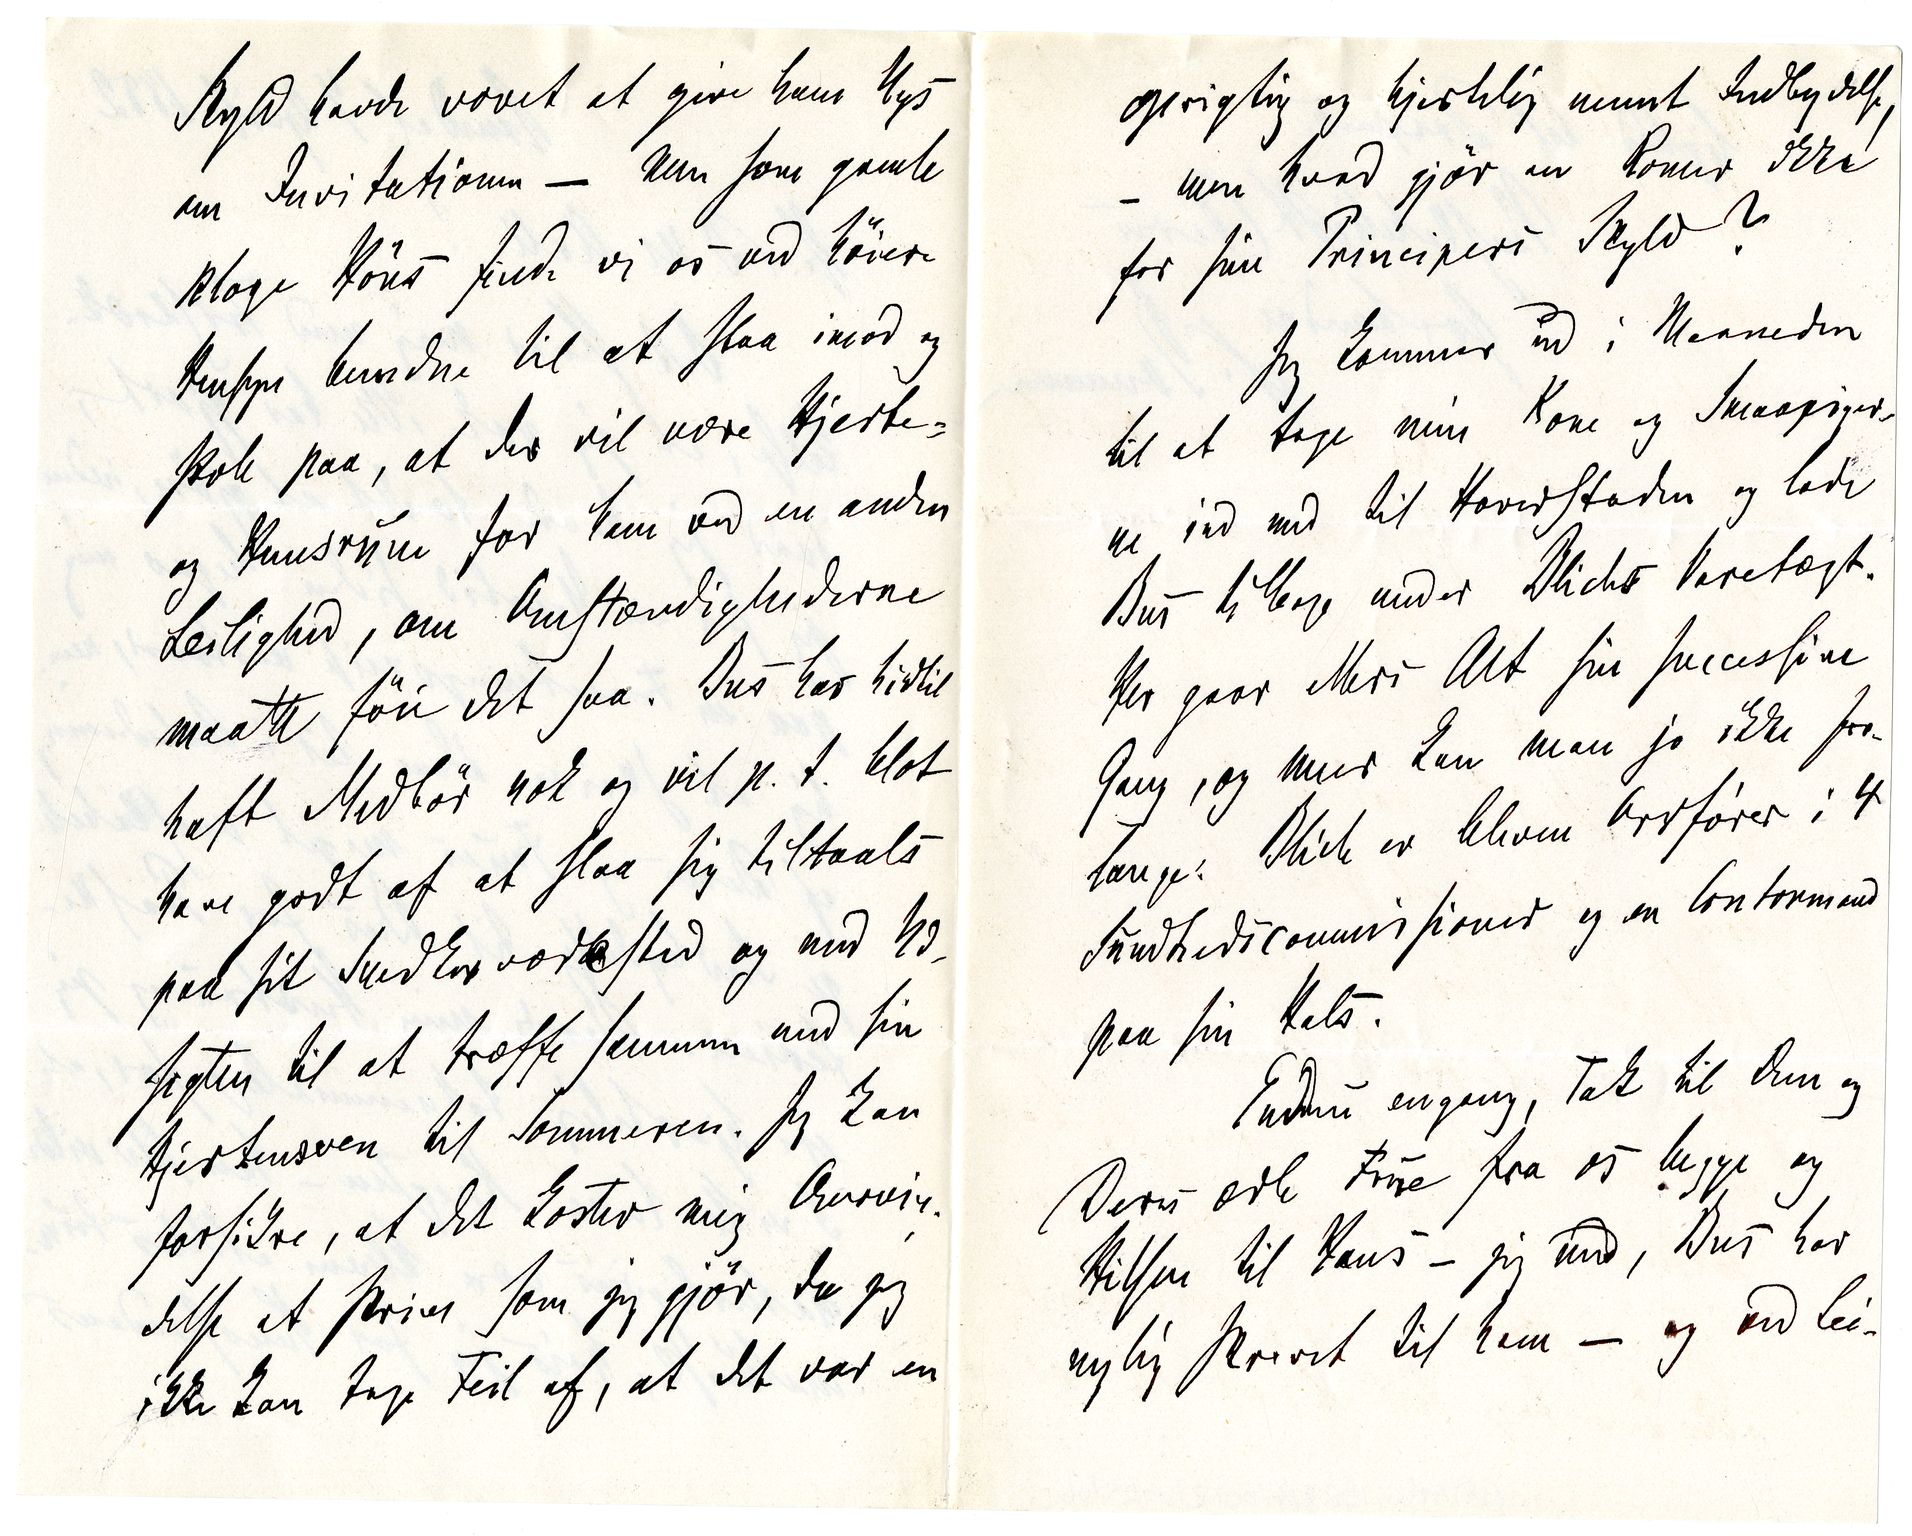 Skyld havde vovet at give ham Nys
om Invitationen — Men som gamle
kloge Höns finde vi os ved höiere
Hensyn bundne til at slaa imod og
stole paa, at der vil være Hjerte-
og Huusrum for ham ved en anden
Leilighed, om Omstændighederne
maatte föie det saa. Bus har hidtil
haft Medbör nok og vil p. t. blot
have godt af at slaa sig tiltaals
paa sit Snedkerværksted og med Ud-
sigten til at træffe sammen med sin
Hjertensven til Sommeren. Jeg kan
forsikre, at det koster mig Overvin-
delse at skrive som jeg gjör, da jeg
ikke kan tage Feil af, at det var en
oprigtig og hjertelig meent Indbydelse,
— men hvad gjör en Romer ikke
for sine Principers Skyld?
Jeg kommer ud i Maaneden
til at tage min Kone og Smaapiger-
ne ind med til Hovedstaden og lade
Bus tilbage under Blichs Varetægt.
Her gaar ellers Alt sin successive
Gang, og meer kan man jo ikke for-
lange. Blich er bleven Ordförer i 4
Sundhedscommissioner og en Contormand
paa sin Hals.
Endnu engang, Tak til Dem og
Deres ædle Frue fra os begge og
Hilsen til Hans — jeg veed, Bus har
nylig skrevet til ham — og ved Lei-